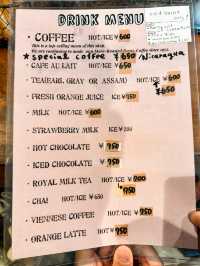 DRINK MENU
• COFFEE HOT/ICE ¥600
this is a top-selling menu of this shop.
★special coffee ¥650 /Nicaragua
CAFE AU LAIT HOT/ICE ¥650
• TEA(EARL GRAY OR ASSAM) HOT/ICE
¥650
• FRESH ORANGE JUICE ICE ¥750
• MILK HOT/ICE ¥600
• STRAWBERRY MILK ICE
• HOT CHOCOLATE ¥750
• ICED CHOCOLATE ¥750
• ROYAL MILK TEA HOT/ICE
¥750
• CHAI HOT/ICE ¥650
• VIENNESE COFFEE HOT/ICE ¥750
• ORANGE LATTE HOT ¥750